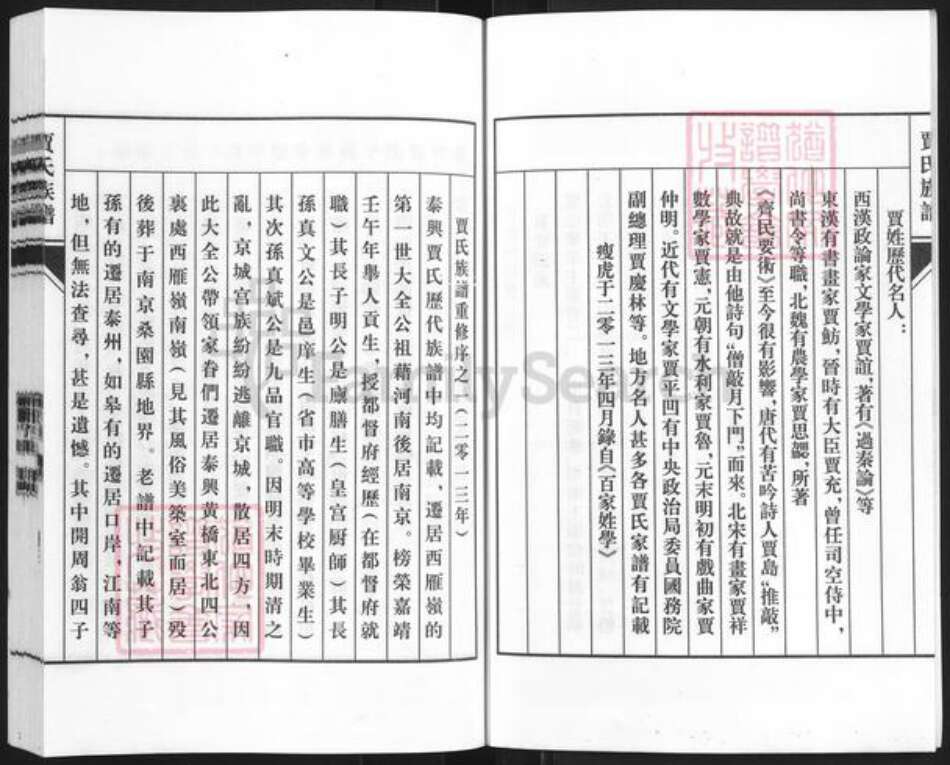 賈氏族譜
賈姓歷代名人：
西漢政論家文學家賈誼，著有《過秦論》等
東漢有書畫家賈魴，晉時有大臣賈充，曾任司空侍中，
尚書令等職，北魏有農學家賈思勰，所著
《齊民要術》至今很有影響，唐代有苦吟詩人賈島“推敲”
典故就是由他詩句“僧敲月下門”而來。北宋有畫家賈祥
數學家賈憲，元朝有水利家賈魯，元末明初有戲曲家賈
仲明。近代有文學家賈平凹有中央政治局委員國務院
副總理賈慶林等。地方名人甚多各賈氏家譜有記載
瘦虎于二零一三年四月錄自《百家姓學》
賈氏族譜重修序之一（二零一三年）
泰興賈氏歷代族譜中均記載，遷居西雁嶺的
第一世大全公祖藉河南後居南京。榜榮嘉靖
壬午年舉人貢生，授都督府經歷（在都督府就
職）其長子明公是廪膳生（皇宫厨師）其長
孫真文公是邑庠生（省市高等學校畢業生）
其次孫真斌公是九品官職。因明末時期清之
亂，京城宫族紛紛逃離京城，散居四方，因
此大全公帶領家眷們遷居泰興黄橋東北四公
裏處西雁嶺南嶺（見其風俗美築室而居）殁
後葬于南京桑園縣地界。老譜中記載其子
孫有的遷居泰州，如皋有的遷居口岸，江南等
地，但無法查尋，甚是遺憾。其中開周翁四子
賈氏族譜
FamilySearch